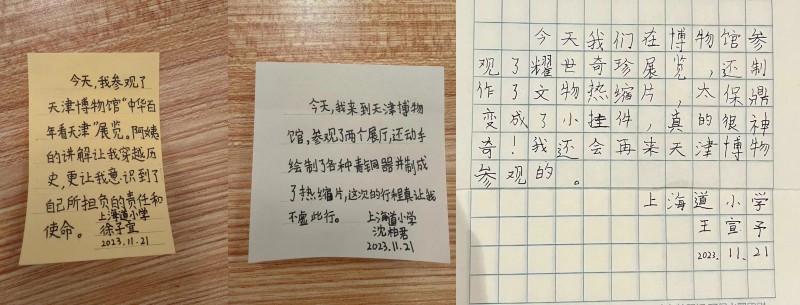 今天,我参观了
天津博物馆“中华百
年看天津”展览。阿姨
的讲解让我穿越历
史,更让我意识到了
自己所担负的责任和
使命。
上海道小学
徐子宜
2023.11.21
今天,我来到天津博物
馆,参观了两个展厅,还动手
绘制了各种青铜器并制成
了热缩片,这次的行程真让我
不虚此行。
上海道小学
沈柏君
2023.11.21
今天我们在博物馆参
观了耀世奇珍展览,还制
作了文物热缩片,太保鼎
变成了小挂件,真的很神
奇!我还会再来天津博物
参观的。
上海道小学
王宣予
2023.11.21